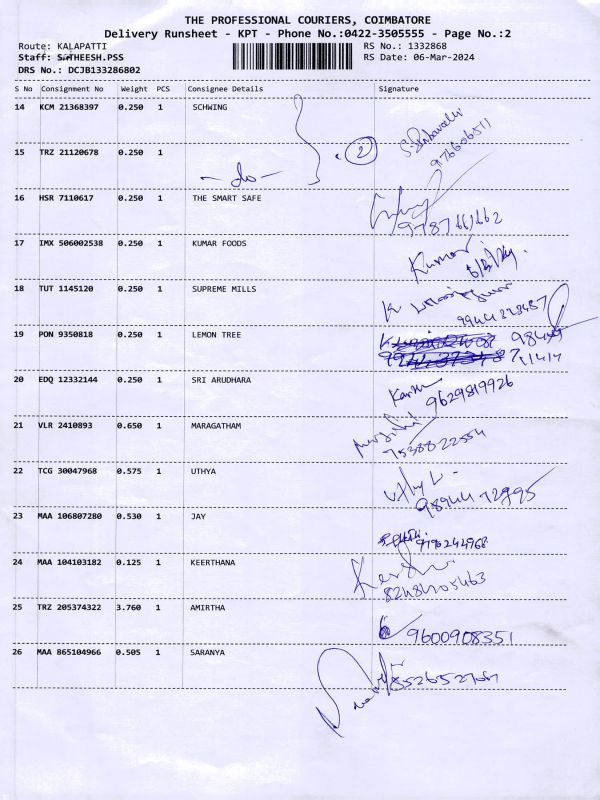 THE PROFESSIONAL COURIERS, COIMBATORE
Delivery Runsheet - KPT - Phone No.:0422-3505555 - Page No.:2
Route: KALAPATTI RS No.: 1332868
Staff: SATHEESH.PSS RS Date: 06-Mar-2024
DRS No.: DCJB133286802
S No Consignment No Weight PCS Consignee Details Signature
14 KCM 21368397 0.250 1 SCHWING
15 TRZ 21120678 0.250 1 - do - 2
976606511
16 HSR 7110617 0.250 1 THE SMART SAFE
9787661662
17 IMX 506002538 0.250 1 KUMAR FOODS Kumar
18 TUT 1145120 0.250 1 SUPREME MILLS
9944273487
19 PON 9350818 0.250 1 LEMON TREE
20 EDQ 12332144 0.250 1 SRI ARUDHARA
9629819926
21 VLR 2410893 0.650 1 MARAGATHAM
7538822554
22 TCG 30047968 0.575 1 UTHYA
23 MAA 106807280 0.530 1 JAY
9790244968
24 MAA 104103182 0.125 1 KEERTHANA
25 TRZ 205374322 3.760 1 AMIRTHA
9600908351
26 MAA 865104966 0.505 1 SARANYA